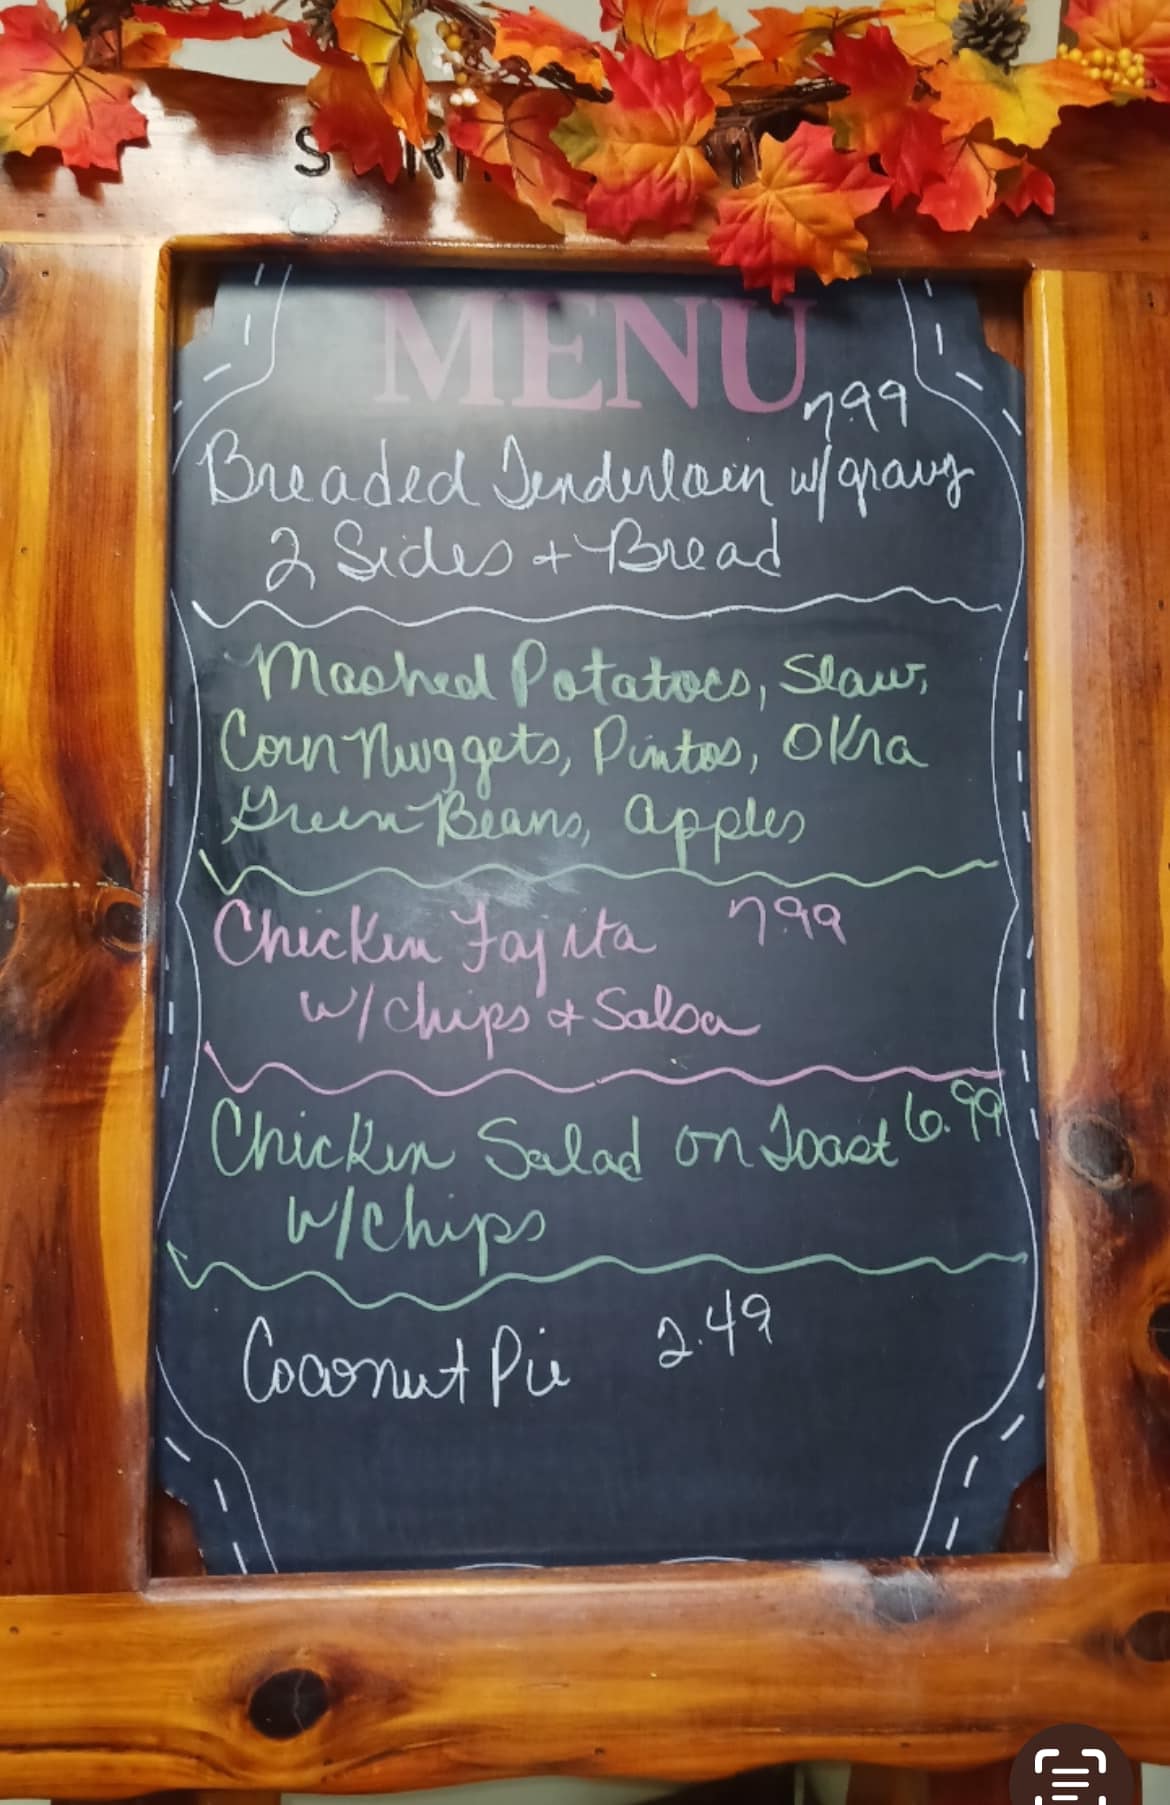 MENU
7.99
Breaded Tenderloin w/gravy
2 Sides + Bread
Mashed Potatoes, Slaw,
Corn Nuggets, Pintos, Okra
Green Beans, Apples
Chicken Fajita 7.99
w/chips & Salsa
Chicken Salad on Toast 6.99
w/chips
Coconut Pie 2.49